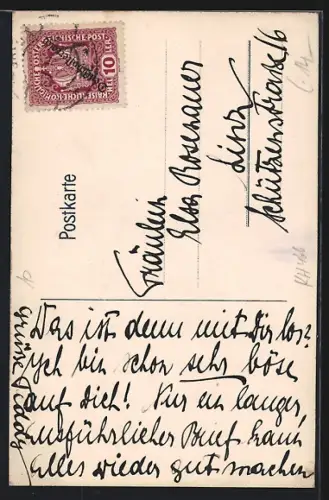 KAISERLICHE KÖN
ÖSTERREICHISCHE POST
10
Postkarte
Fräulein
Elsa Rosenauer
Linz
Schützenstrasse 16
Was ist denn mit Dir los?
Ich bin schon sehr böse
auf Dich! Nur ein langer,
ausführlicher Brief kann
Alles wieder gut machen
Grüsse